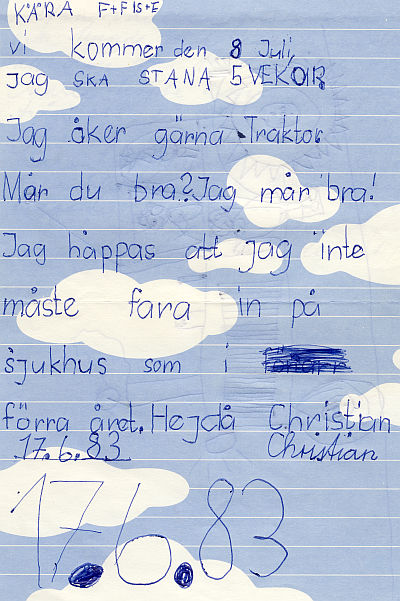 KÄRA F+F IS+E
vi kommer den 8 Juli,
jag SKA STANA 5 VEKOR
Jag åker gärna Traktor
Mår du bra? Jag mår bra!
Jag håppas att jag inte
måste fara in på
sjukhus som i
förra året. Hejdå Christian
17.6.83 Christian
17.6.83